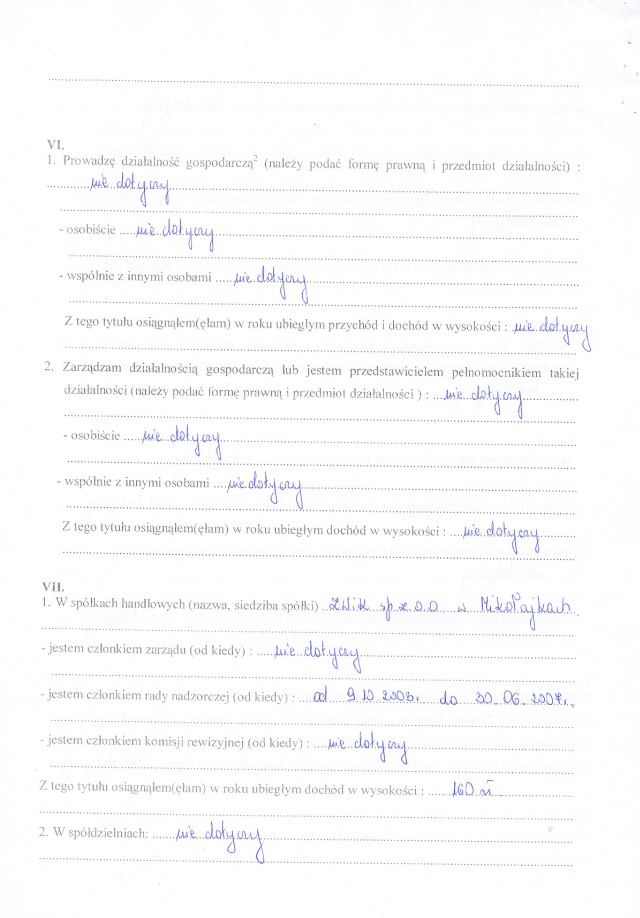 VI.
1. Prowadzę działalność gospodarczą² (należy podać formę prawną i przedmiot działalności) :
nie dotyczy
- osobiście nie dotyczy
- wspólnie z innymi osobami nie dotyczy
Z tego tytułu osiągnąłem(ęłam) w roku ubiegłym przychód i dochód w wysokości : nie dotyczy
2. Zarządzam działalnością gospodarczą lub jestem przedstawicielem pełnomocnikiem takiej
działalności (należy podać formę prawną i przedmiot działalności ) : nie dotyczy
- osobiście nie dotyczy
- wspólnie z innymi osobami nie dotyczy
Z tego tytułu osiągnąłem(ęłam) w roku ubiegłym dochód w wysokości : nie dotyczy
VII.
1. W spółkach handlowych (nazwa, siedziba spółki) ZWiK sp. z o.o. w Mikołajkach
- jestem członkiem zarządu (od kiedy) : nie dotyczy
- jestem członkiem rady nadzorczej (od kiedy) : od 9.10.2003r. do 30.06.2007r.
- jestem członkiem komisji rewizyjnej (od kiedy) : nie dotyczy
Z tego tytułu osiągnąłem(ęłam) w roku ubiegłym dochód w wysokości : 160 zł
2. W spółdzielniach: nie dotyczy